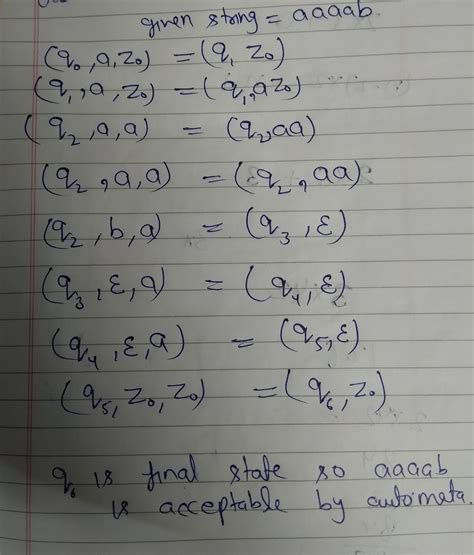 given string = aaaab.
(q₀, a, z₀) = (q₁ z₀)
(q₁, a, z₀) = (q₁, az₀)
(q₂, a, a) = (q₂, aa)
(q₂, a, a) = (q₂, aa)
(q₂, b, a) = (q₃, ε)
(q₃, ε, a) = (q₄, ε)
(q₄, ε, a) = (q₅, ε).
(q₅, z₀, z₀) = (q₆, z₀)
q₆ is final state so aaaab
is acceptable by automata.